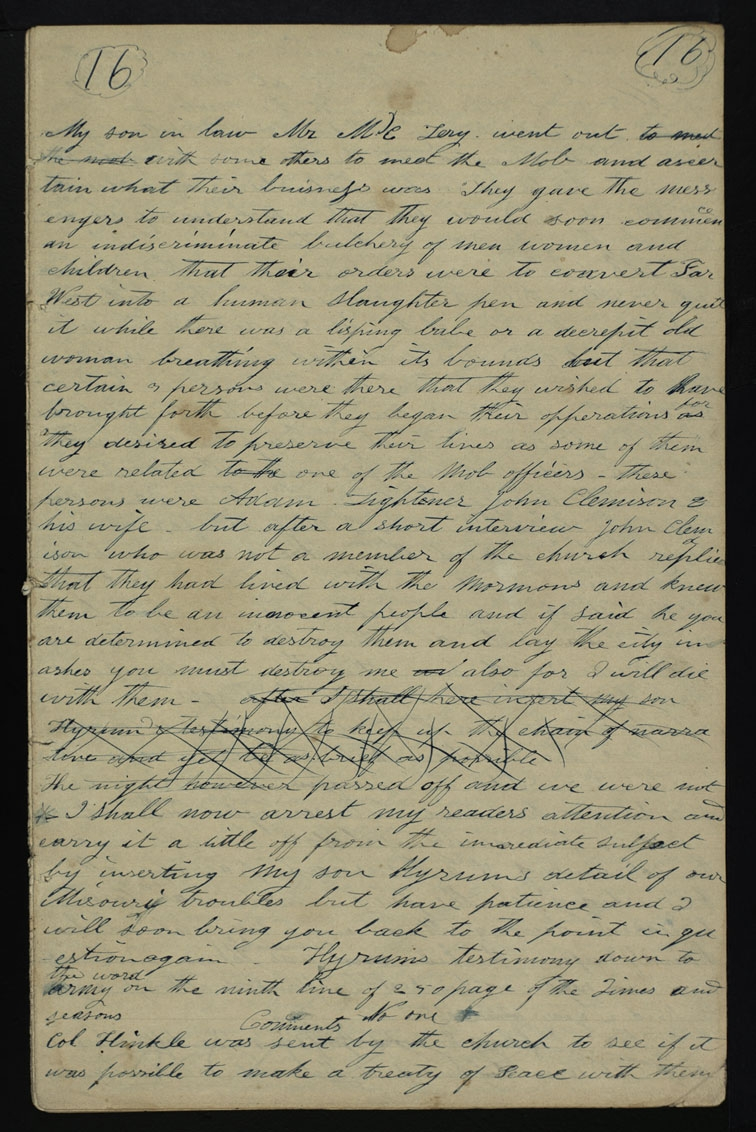 16 16
My son in law Mr Mc Lery. went out to meet
the mob with some others to meet the Mob and ascer
tain what their buisness was They gave the mess
engers to understand that they would soon commen
ce
an indiscriminate butchery of men women and
children that their orders were to convert Far
West into a human slaughter pen and never quit
it while there was a lisping babe or a decrepit old
woman breathing within its bounds but that
certain persons were there that they wished to have
brought forth before they began their opperations as
for
they desired to preserve their lives as some of them
were related to the one of the Mob officers - these
persons were Adam Lightener John Clemison &
his wife - but after a short interview John Clem
ison who was not a member of the church replied
that they had lived with the Mormons and knew
them to be an innocent people and if said he you
are determined to destroy them and lay the city in
ashes you must destroy me also for I will die
with them - after I shall here insert my son
Hyrum's testimony to keep up the chain of narra
tive and yet be as brief as possible
The night however passed off and we were not
* I shall now arrest my readers attention and
carry it a little off from the immediate subject
by inserting my son Hyrums detail of our
Misouri troubles but have patience and I
will soon bring you back to the point in qu
estion again - Hyrums testimony down to
the word
army on the ninth line of 250 page of the Times and
seasons
Comments No one *
Col Hinkle was sent by the church to see if it
was possible to make a treaty of peace with them